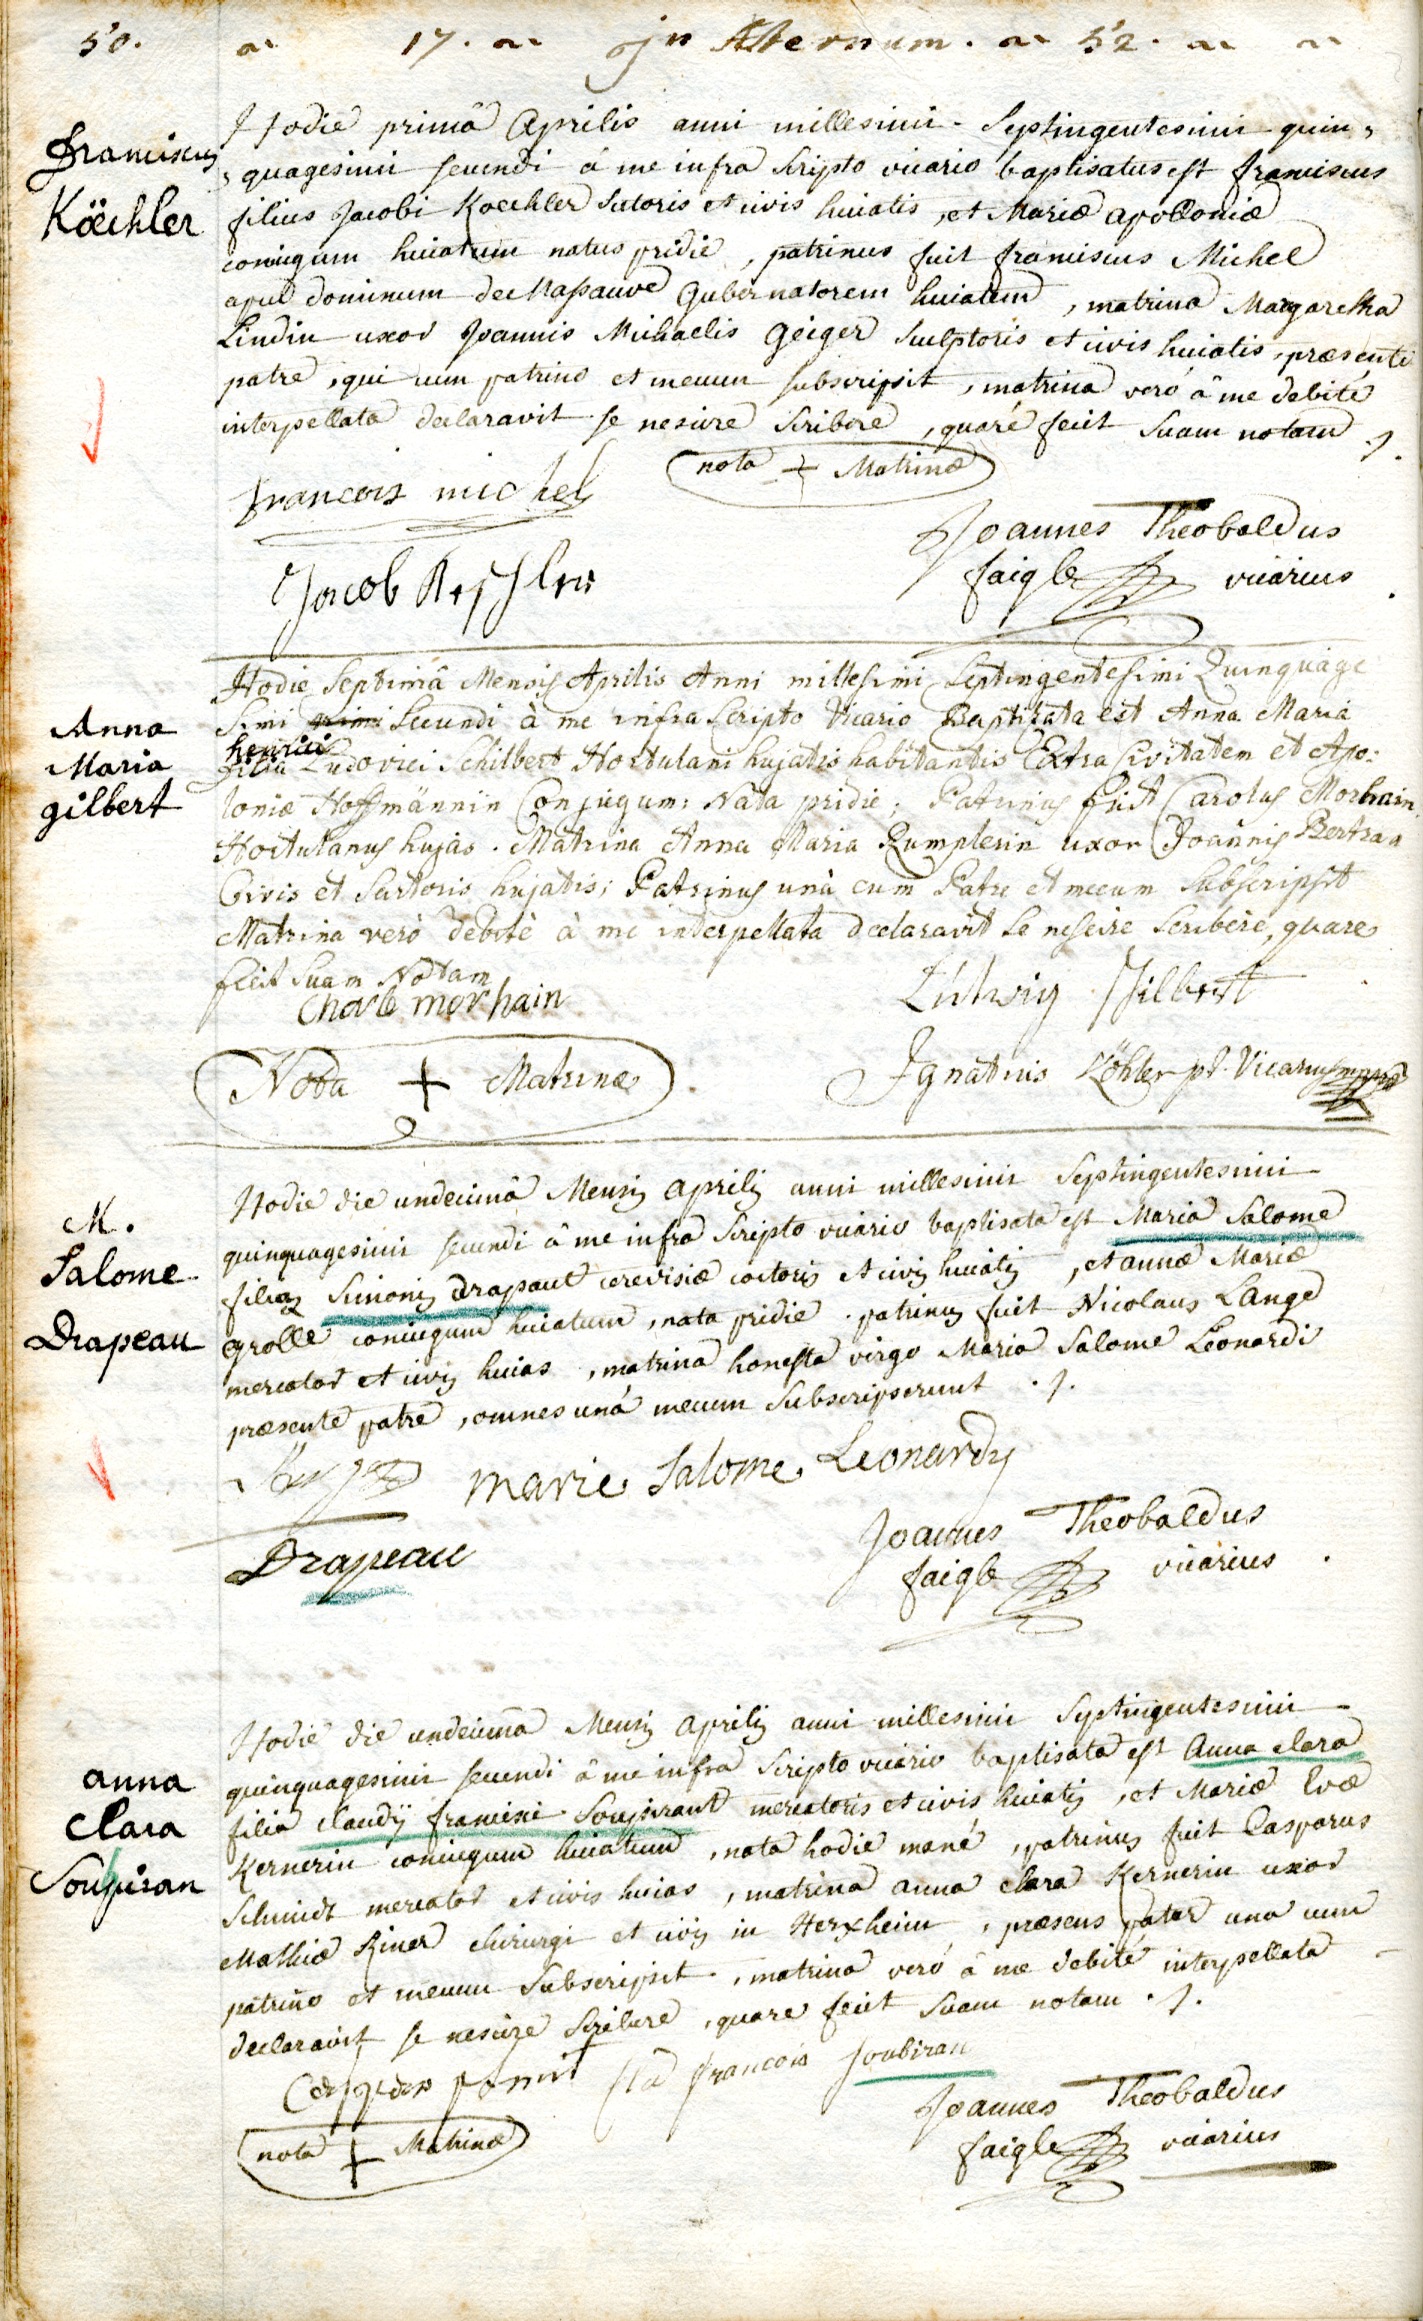 50. 17. jn Æternum. 52.
Franciscus
Köechler
Hodie primâ Aprilis anni millesimi Septingentesimi quin„
„quagesimi secundi á me infra scripto vicario baptisatus est franciscus
filius Jacobi Koechler sutoris et civis huiatis, et Mariæ apolloniæ
coniugum huiatum natus pridie, patrinus fuit franciscus Michel
apud dominum de Gubernatorem huiatem, matrina Margaretha
Lindin uxor Joannis Michaelis Geiger sculptoris et civis huiatis, præsente
patre, qui cum patrino et mecum subscripsit, matrina veró â me debité
interpellata declaravit se nescire scribere, quaré fecit suam notam ./.
francois michel
nota + Matrinæ
Joannes Theobaldus
faigle vicarius
Jacob
Anna
Maria
gilbert
Hodie Septimâ Mensis Aprilis Anni millesimi Septingentesimi Quinquage
simi secundi à me infra scripto Vicario Baptizata est Anna Maria
henrici
filia Ludovici Schilbert Hortulani hujatis habitantis Extra Civitatem et Apo:
loniæ Hoffmännin Conjugum: Nata pridie; Patrinus fuit Carolus Morhain
Hortulanus hujas. Matrina Anna Maria Rumplerin uxor Joannis Bertran
Civis et Sartoris hujatis; Patrinus unà cum Patre et mecum subscripsit
Matrina verò debitè à me interpellata declaravit se nescire scribere, quare
fecit suam Notam
Charle morhain
Ludwig Gilbert
Nota + Matrinæ
Ignatius Köhler pt. Vicarius
M.
Salome
Drapeau
Hodie die undecimâ Mensis aprilis anni millesimi Septingentesimi
quinquagesimi secundi â me infra scripto vicario baptisata est Maria Salome
filia Simonis drapaut cerevisiæ coctoris et civis huiatis, et annæ Mariæ
grolle coniugum huiatum, nata pridie. patrinus fuit Nicolaus Lange
mercator et civis huias, matrina honesta virgo Maria Salome Leonardi
præsente patre, omnes uná mecum subscripserunt ./.
Marie Salome Leonardy
Drapeau
Joannes Theobaldus
faigle vicarius
anna
Clara
Soubiran
Hodie die undecima Mensis aprilis anni millesimi Septingentesimi
quinquagesimi secundi â me infra scripto vicario baptisata est Anna clara
filia claudÿ francisci Soupirant mercatoris et civis huiatis, et Mariæ Evæ
Kernerin coniugum huiatum, nata hodie mané, patrinus fuit Casparus
Schmidt mercator et civis huias, matrina anna clara Kernerin uxor
Mathiæ Riner chirurgi et civis in Herxheim, præsens pater una cum
patrino et mecum subscripsit, matrina veró â me debité interpellata
declaravit se nescire scribere, quare fecit suam notam ./.
francois soubiran
nota + Matrinæ
Joannes Theobaldus
faigle vicarius